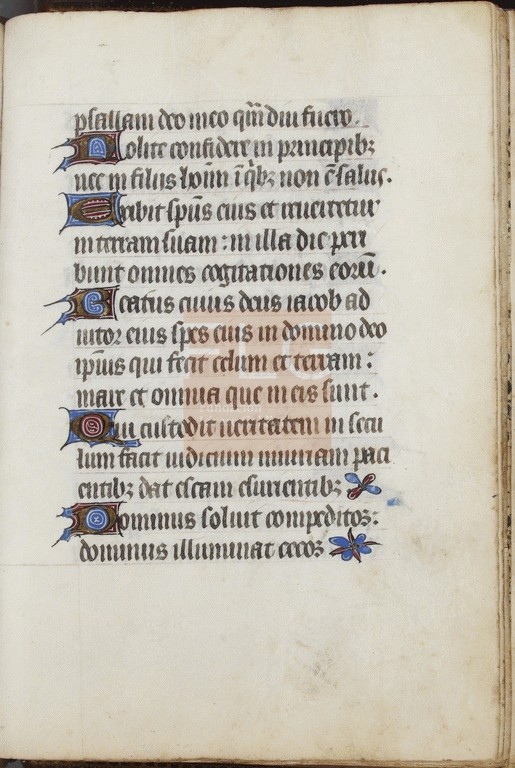 psallam deo meo qm̄diu fuero.
Nolite confidere in principibꝫ
nec in filijs hoīm ī qͥbꝫ non ē salus.
Exibit sp̄us eius et reuertetur
in terram suam: in illa die peri
bunt omnes cogitationes eorū.
Beatus cuius deus iacob ad
iutor eius spes eius in domino deo
ip̄ius qui fecit celum et terram:
mare et omnia que in eis sunt.
Qui custodit ueritatem in secu
lum facit iudicium iniuriam paci
entibꝫ dat escam esurientibꝫ
Dominus soluit compeditos:
dominus illuminat cecos
FLG
Fundación